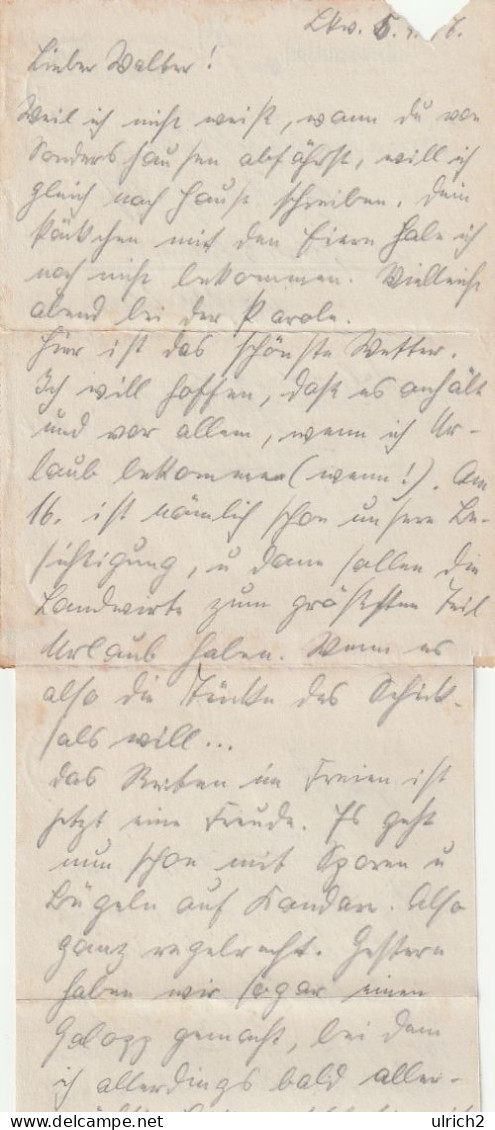 Lkw. 5.
Lieber Walter!
Weil ich nicht weiß, wann du von
Sondershausen abfährst, will ich
gleich nach Haus schreiben. Dein
Päckchen mit den Eiern habe ich
noch nicht bekommen. Vielleicht
abend bei der Parole.
Hier ist das schönste Wetter.
Ich will hoffen, daß es anhält
und vor allem, wenn ich Ur-
laub bekomme (wenn!). Am
16. ist nämlich schon unsere Be-
sichtigung, u dann sollen die
Landwirte zum größten Teil
Urlaub haben. Wenn es
also die Tücke des Schick-
sals will...
Das Reiten im Freien ist
jetzt eine Freude. Es geht
nun schon mit Sporen u
Bügeln auf Kandare. Also
ganz regelrecht. Gestern
haben wir sogar einen
Galopp gemacht, bei dem
ich allerdings bald aller-
ulrich2